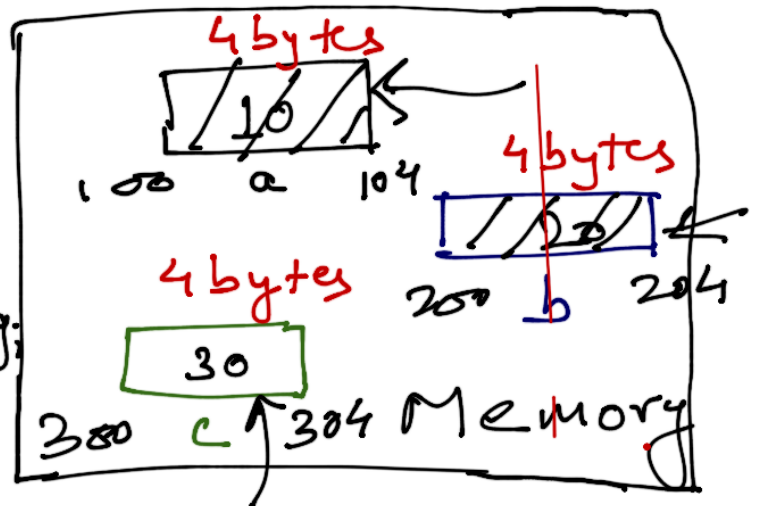 4 bytes
10
100 a 104
4 bytes
20
200 b 204
4 bytes
30
300 c 304
Memory